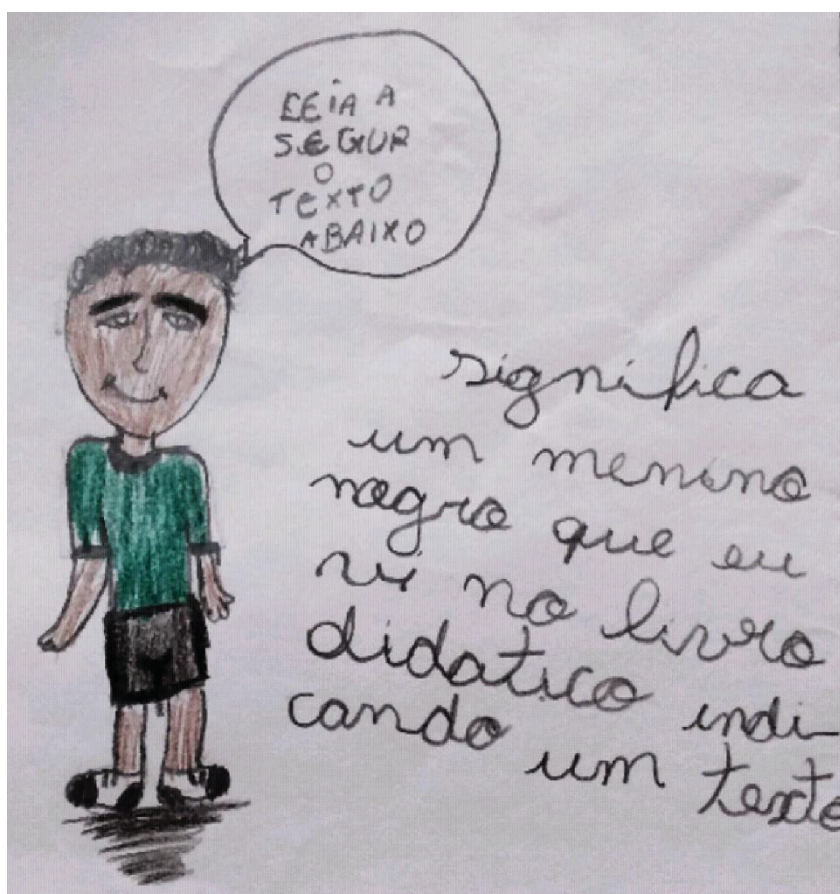 LEIA A
SEGUR
O
TEXTO
ABAIXO
significa
um menino
negro que eu
vi no livro
didatico indi-
cando um texto